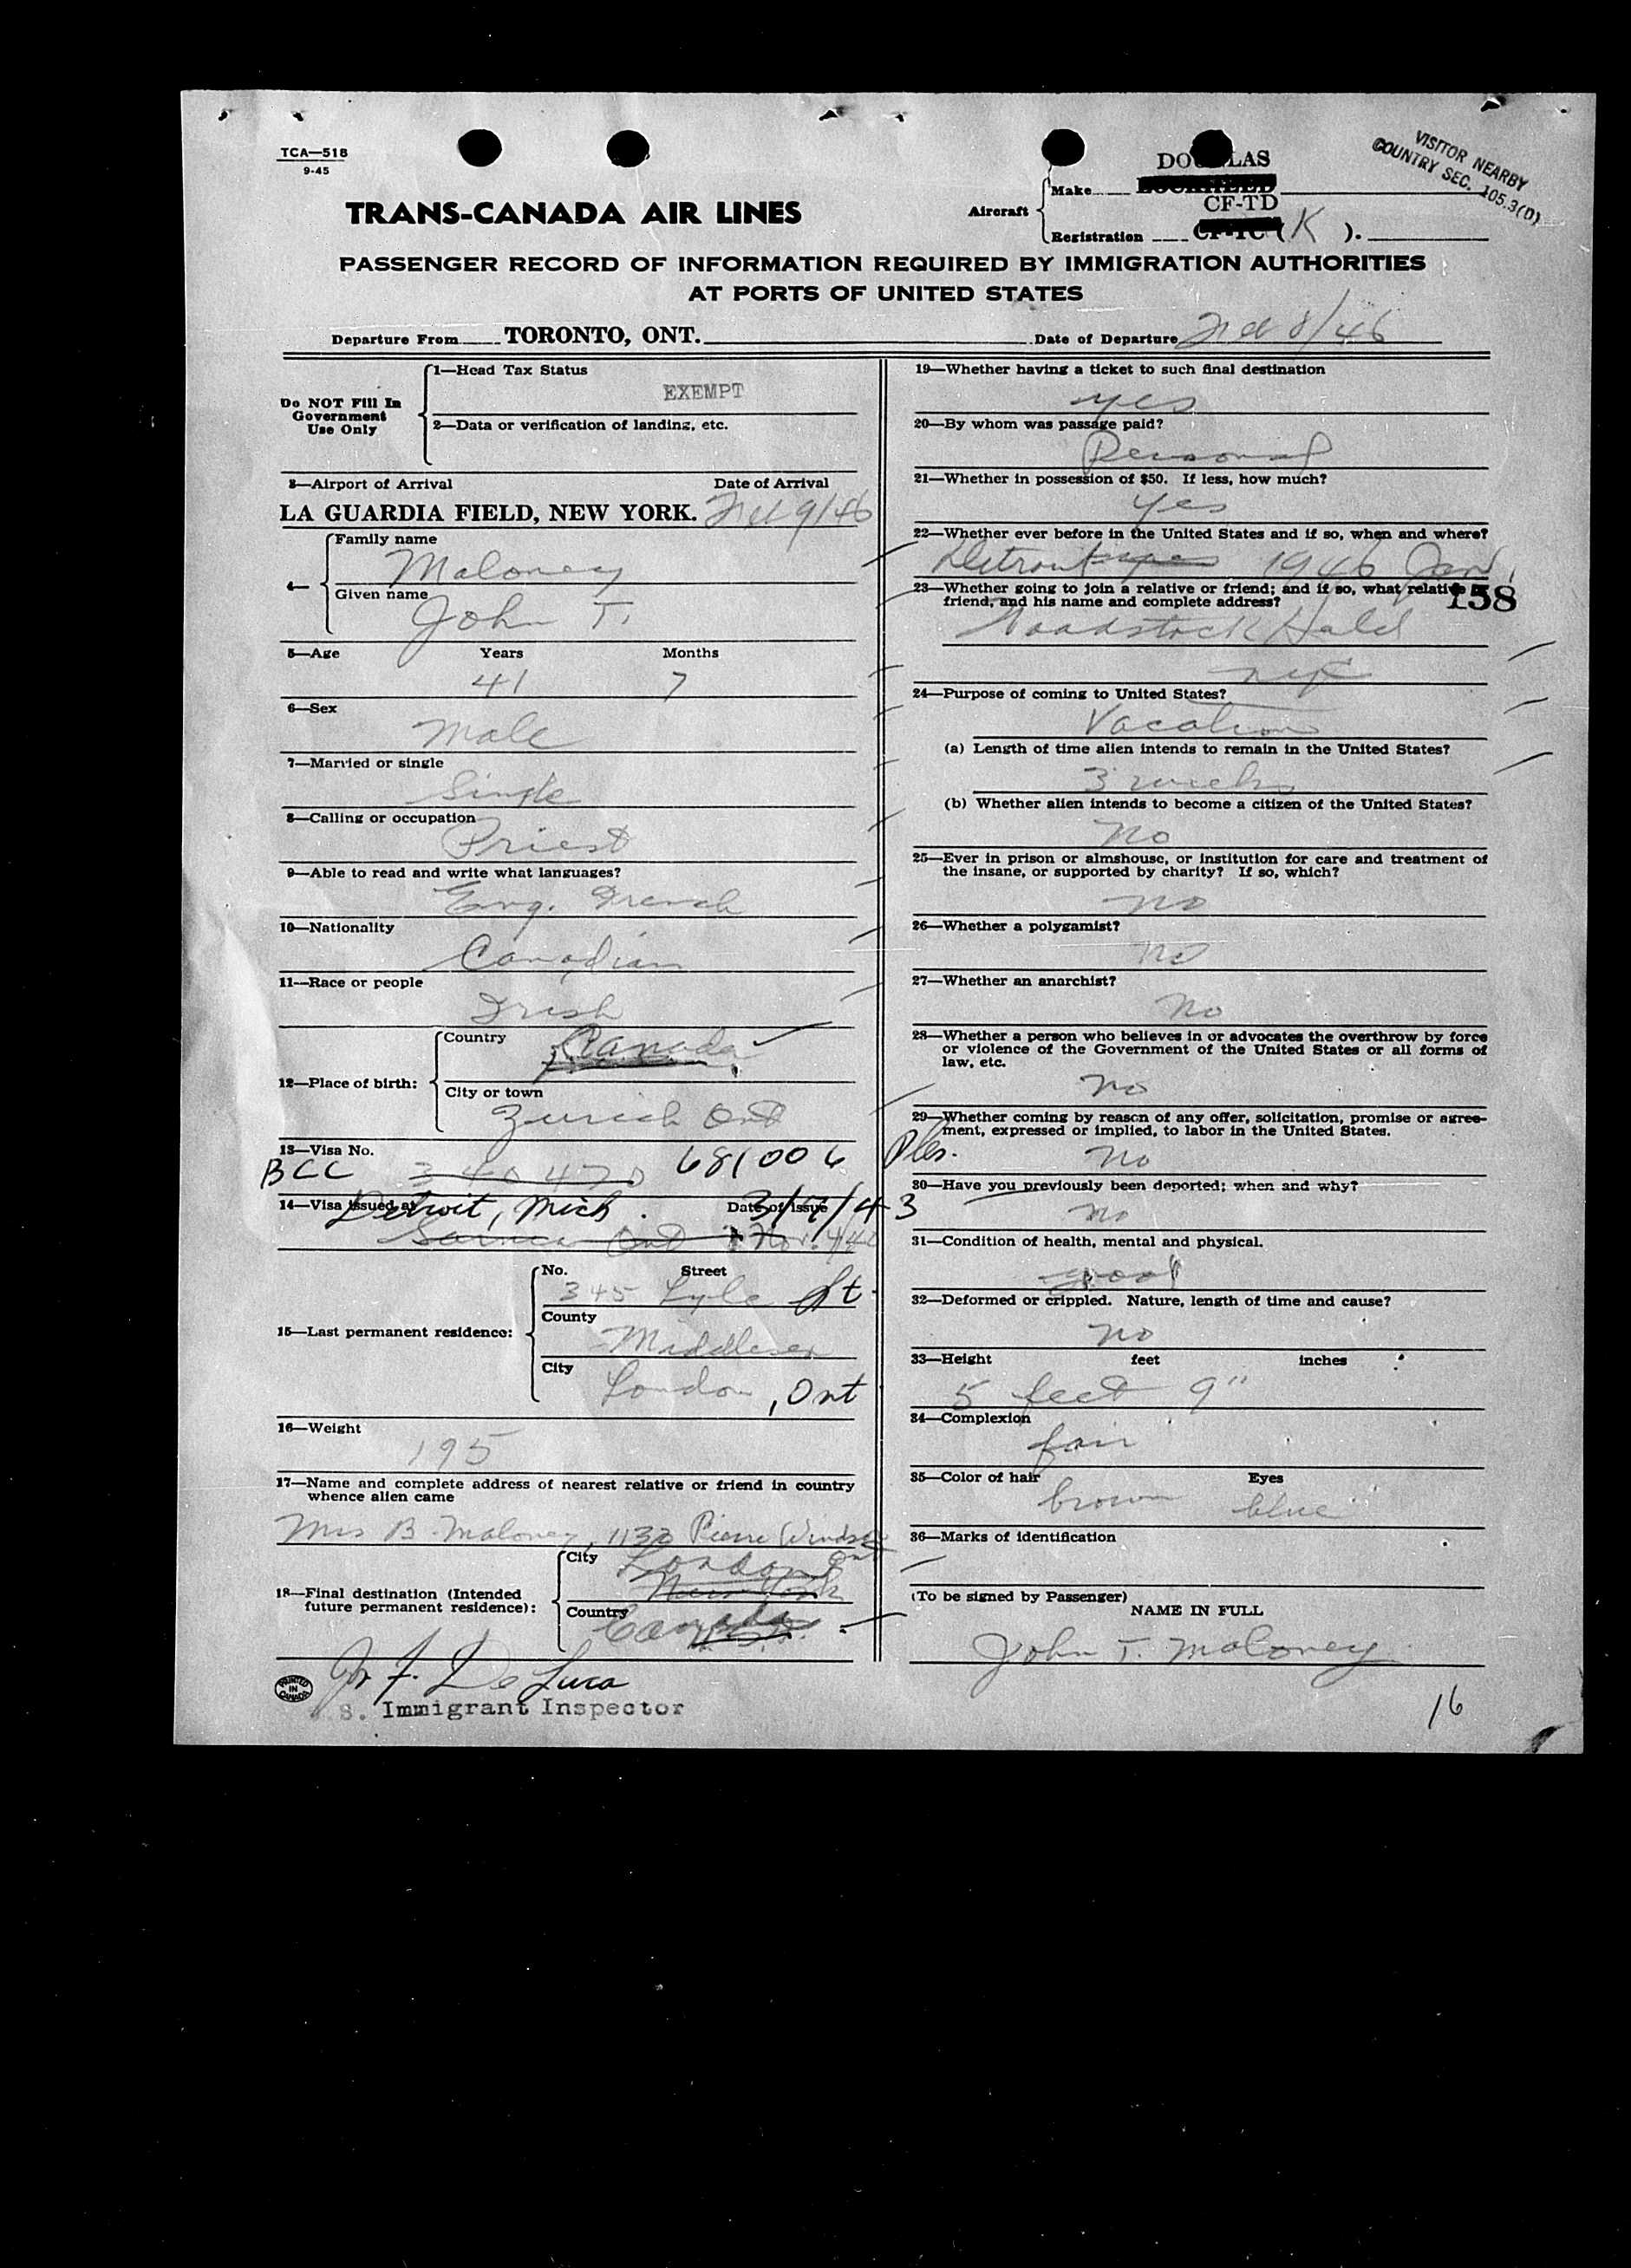 TCA—518
9-45
VISITOR NEARBY
COUNTRY SEC. 105.3(D)
TRANS-CANADA AIR LINES
DOUGLAS
Aircraft Make LOCKHEED
CF-TD
Registration CF-TC (K).
PASSENGER RECORD OF INFORMATION REQUIRED BY IMMIGRATION AUTHORITIES
AT PORTS OF UNITED STATES
Departure From TORONTO, ONT. Date of Departure 8/46
Do NOT Fill In
Government
Use Only
1—Head Tax Status
EXEMPT
2—Data or verification of landing, etc.
3—Airport of Arrival Date of Arrival
LA GUARDIA FIELD, NEW YORK. 9/46
4—
Family name
Maloney
Given name
John T.
5—Age Years Months
41 7
6—Sex
Male
7—Married or single
Single
8—Calling or occupation
Priest
9—Able to read and write what languages?
Eng. French
10—Nationality
Canadian
11—Race or people
Irish
12—Place of birth:
Country
Canada
City or town
Zurich Ont
13—Visa No.
BCC 340470 681006
14—Visa issued at Detroit, Mich. Date of issue 3/ /43
Sarnia Ont Nov.
15—Last permanent residence:
No. Street
345 Lyle St.
County
Middlesex
City
London, Ont
16—Weight
195
17—Name and complete address of nearest relative or friend in country
whence alien came
Mrs B. Maloney, 1132 Pierre Windsor
Ont
18—Final destination (Intended
future permanent residence):
City London
New York
Country Canada
U.S.A.
De Luca
S. Immigrant Inspector
PRINTED
IN
CANADA
19—Whether having a ticket to such final destination
yes
20—By whom was passage paid?
Personal
21—Whether in possession of $50. If less, how much?
yes
22—Whether ever before in the United States and if so, when and where?
Detroit yes 1946 Jan.
23—Whether going to join a relative or friend; and if so, what relative or
friend, and his name and complete address?
158
Woodstock Hotel
NYC
24—Purpose of coming to United States?
Vacation
(a) Length of time alien intends to remain in the United States?
3 weeks
(b) Whether alien intends to become a citizen of the United States?
No
25—Ever in prison or almshouse, or institution for care and treatment of
the insane, or supported by charity? If so, which?
no
26—Whether a polygamist?
no
27—Whether an anarchist?
No
28—Whether a person who believes in or advocates the overthrow by force
or violence of the Government of the United States or all forms of
law, etc.
no
29—Whether coming by reason of any offer, solicitation, promise or agree-
ment, expressed or implied, to labor in the United States.
no
30—Have you previously been deported; when and why?
no
31—Condition of health, mental and physical.
good
32—Deformed or crippled. Nature, length of time and cause?
no
33—Height feet inches
5 feet 9"
34—Complexion
fair
35—Color of hair Eyes
brown blue
36—Marks of identification
(To be signed by Passenger)
NAME IN FULL
John T. Maloney
16